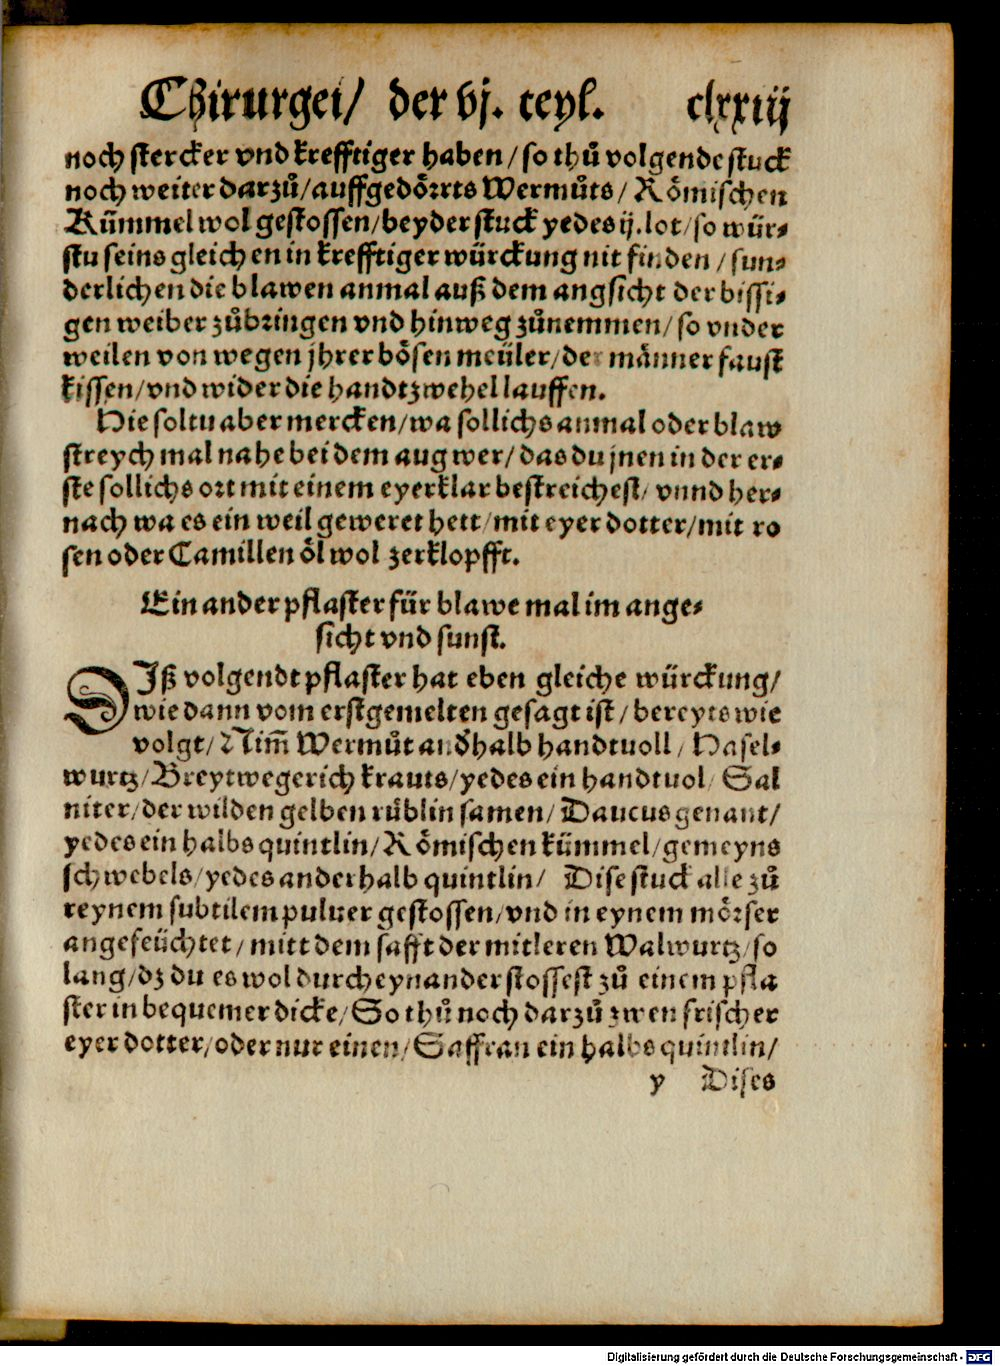 Chirurgei/ der vj. teyl. clxxiij
noch stercker vnd krefftiger haben/so thů volgende stuck
noch weiter darzů/auffgedörrts Wermůts/ Römischen
Kümmel wol gestossen/beyder stuck yedes ij.lot/so wür⸗
stu seins gleichen in krefftiger würckung nit finden/sun⸗
derlichen die blawen anmal auß dem angsicht der bissi⸗
gen weiber zůbringen vnd hinweg zůnemmen/so vnder
weilen von wegen jhrer bösen meüler/der männer faust
kissen/vnd wider die handtzwehel lauffen.
Hie soltu aber mercken/wa sollichs anmal oder blaw
streych mal nahe bei dem aug wer/das du jnen in der er⸗
ste sollichs ort mit einem eyerklar bestreichest/vnnd her⸗
nach wa es ein weil geweret hett/mit eyer dotter/mit ro
sen oder Camillen öl wol zerklopfft.
Ein ander pflaster für blawe mal im ange⸗
sicht vnd sunst.
DIß volgendt pflaster hat eben gleiche würckung/
wie dann vom erstgemelten gesagt ist/bereyts wie
volgt/Nim̃ Wermůt andhalb handtuoll/Hasel⸗
wurtz/Breytwegerich krauts/yedes ein handtuol/Sal
niter/der wilden gelben růblin samen/Daucus genant/
yedes ein halbs quintlin/Römischen kümmel/gemeyns
schwebels/yedes anderhalb quintlin/ Dise stuck alle zů
reynem subtilem puluer gestossen/vnd in eynem mörser
angefeüchtet/mitt dem safft der mitleren Walwurtz/so
lang/dz du es wol durcheynander stossest zů einem pfla
ster in bequemer dicke/So thů noch darzů zwen frischer
eyer dotter/oder nur einen/Saffran ein halbs quintlin/
y Dises
Digitalisierung gefördert durch die Deutsche Forschungsgemeinschaft - DFG